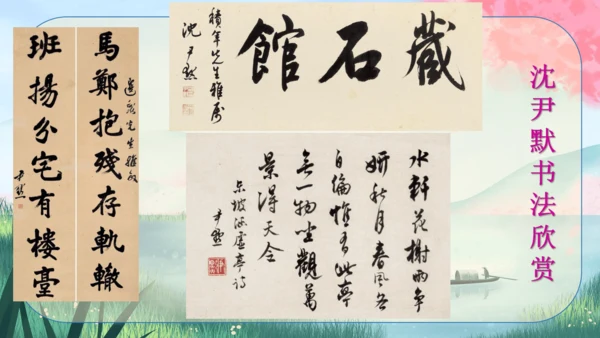 沈尹默书法欣赏
藏石館
先生雅屬
沈尹默
馬鄭抱殘存軌轍
先生雅教
班揚分宅有樓臺
尹默
水軒花榭兩爭
妍秋月春風各
自偏惟有此亭
無一物坐觀萬
景得天全
東坡涵虛亭詩
尹默